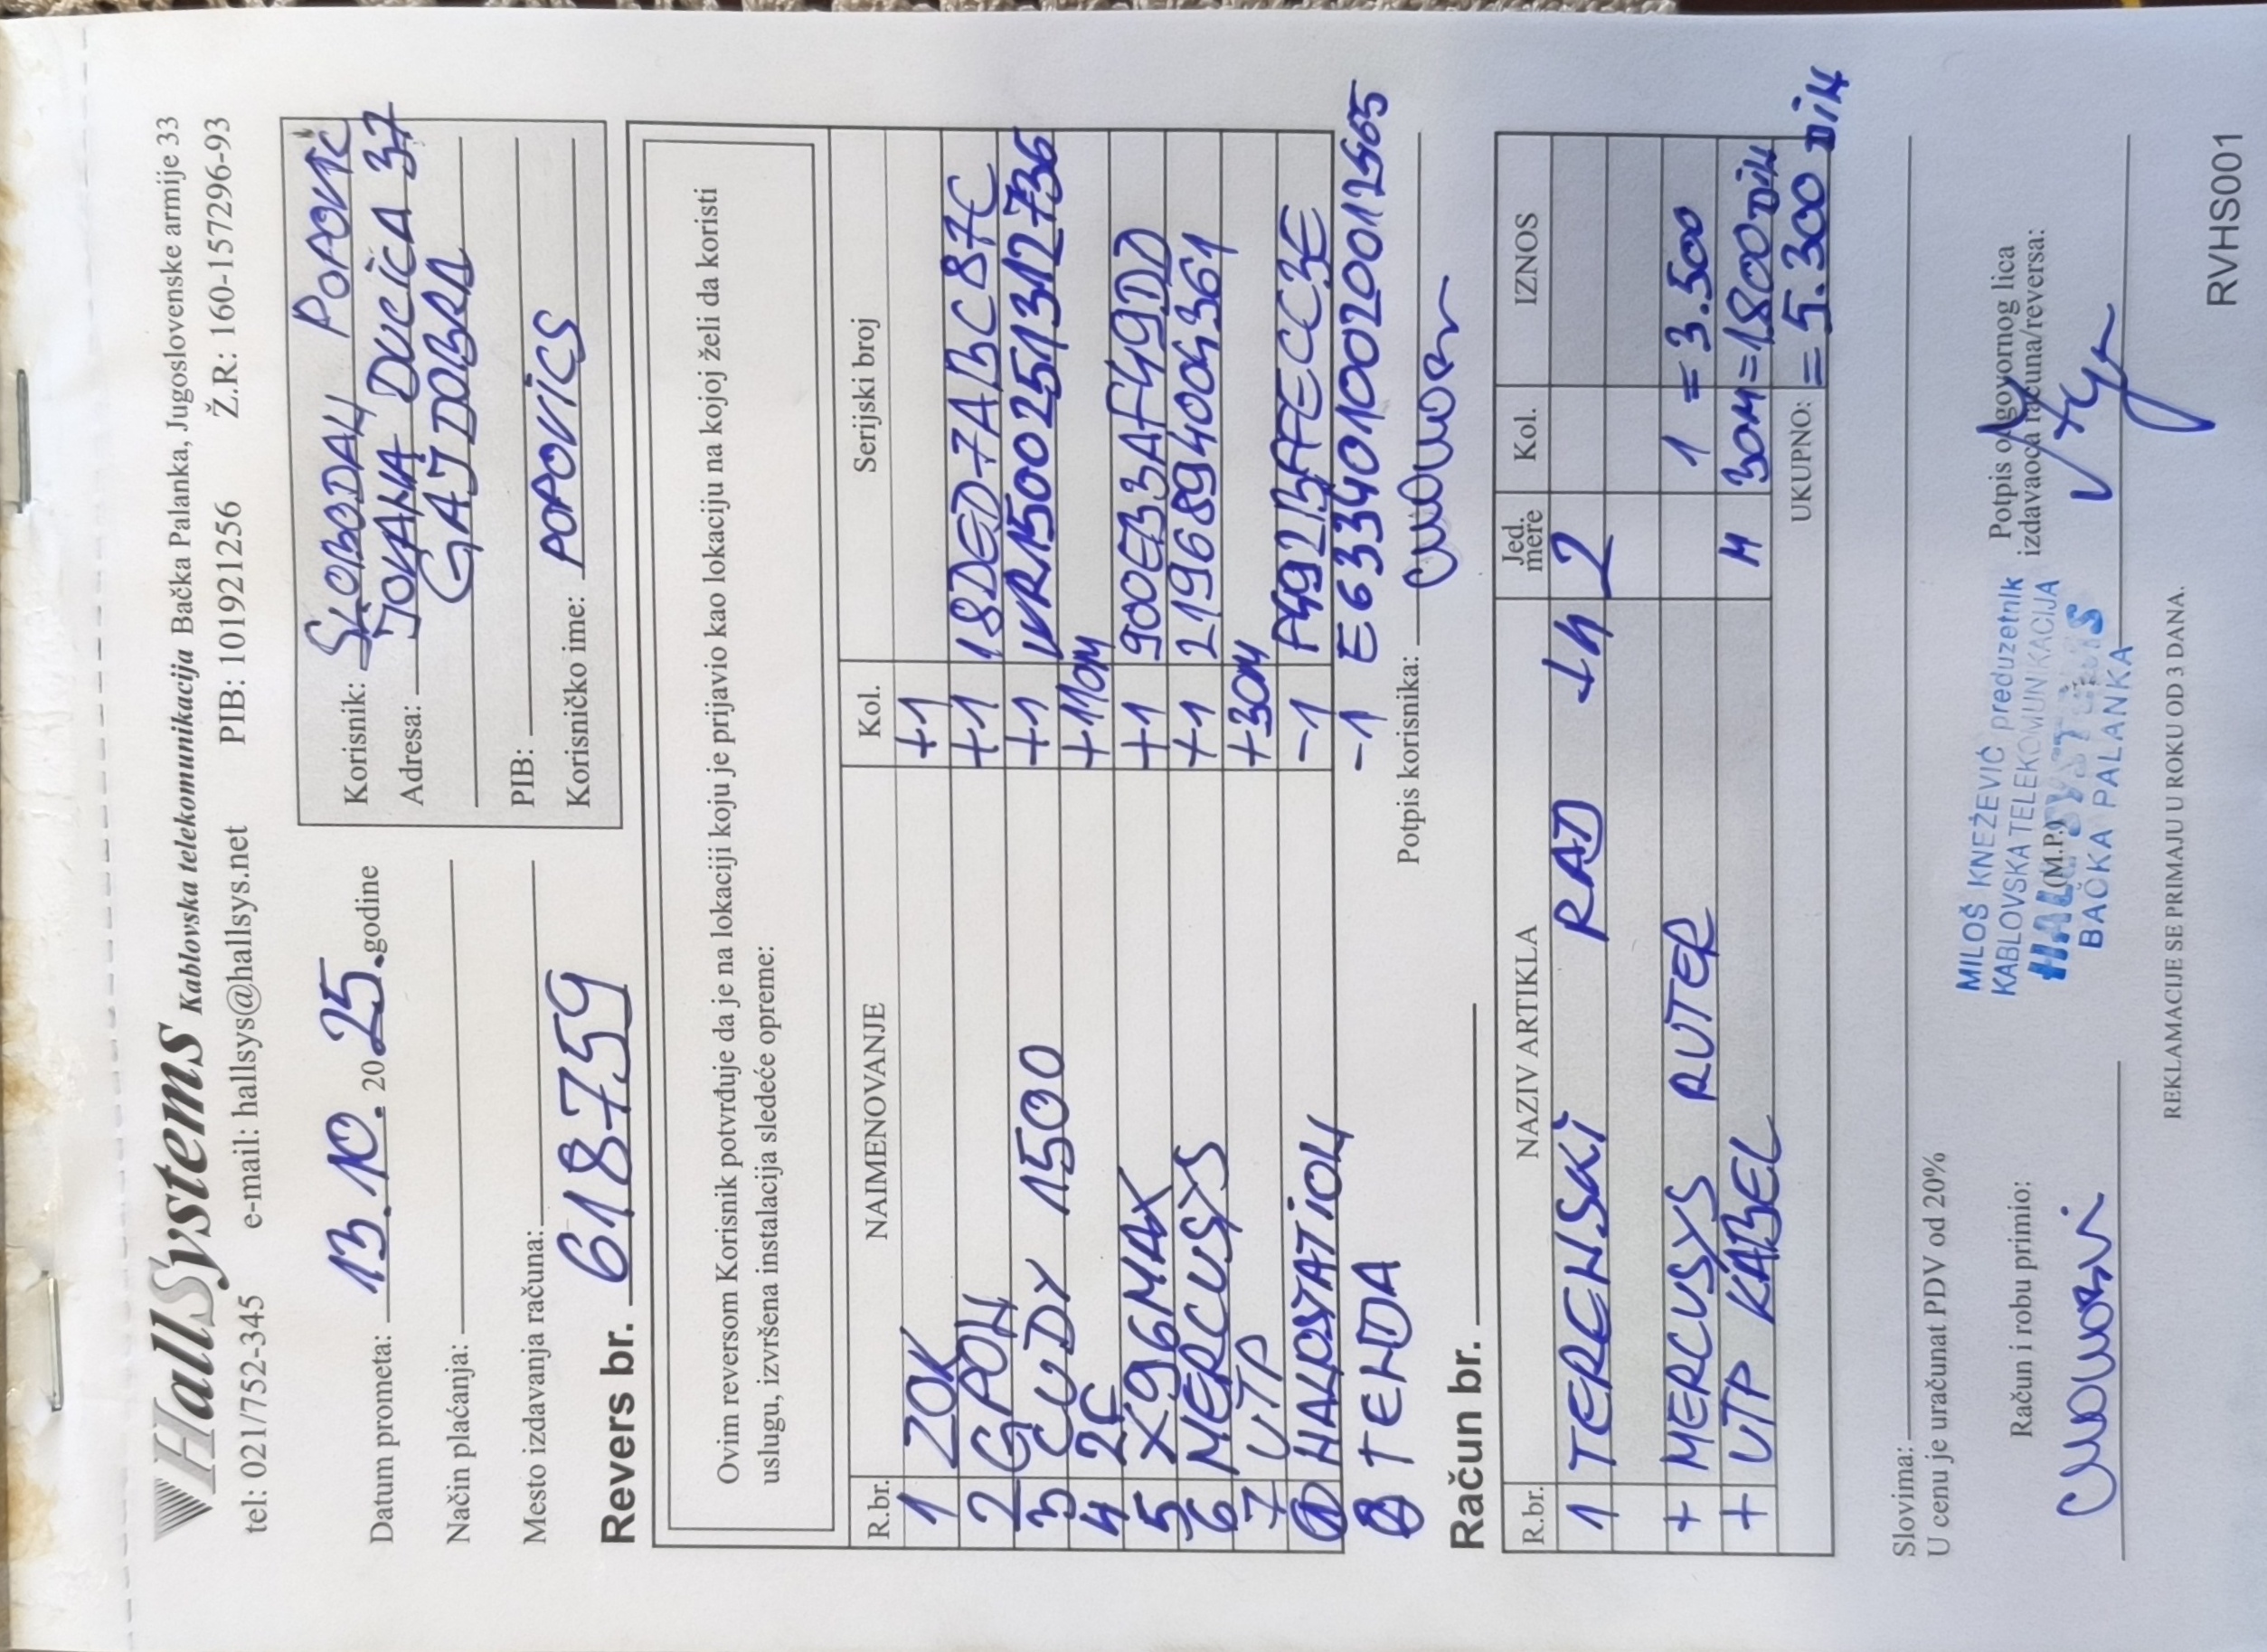 HallSystems Kablovska telekomunikacija Bačka Palanka, Jugoslovenske armije 33
tel: 021/752-345 e-mail: hallsys@hallsys.net PIB: 101921256 Ž.R: 160-157296-93
Datum prometa: 13.10.2025.godine
Način plaćanja:
Mesto izdavanja računa:
Korisnik: SLOBODAN POPOVIĆ
Adresa: JOVANA DUČIĆA 37
GAJDOBRA
PIB:
Korisničko ime: POPOVICS
Revers br. 618759
Ovim reversom Korisnik potvrđuje da je na lokaciji koju je prijavio kao lokaciju na kojoj želi da koristi
uslugu, izvršena instalacija sledeće opreme:
R.br. NAIMENOVANJE Kol. Serijski broj
1 ZOK +1
2 GPON +1 18DED7ABC87C
3 CUDY 1500 +1 WR1500251312736
4 2F +110M
5 X96MAX +1 900EB3AF49DD
6 MERCUSYS +1 2196894004361
7 UTP +30M
1 HALOSTATION -1 F4921BFECC3E
2 TENDA -1 E6334010020012565
Potpis korisnika:
Račun br.
R.br. NAZIV ARTIKLA Jed. mere Kol. IZNOS
1 TERENSKI RAD +H 2
+ MERCUSYS RUTER 1 = 3.500
+ UTP KABEL M 30M = 1.800 DIN
UKUPNO: = 5.300 DIN
Slovima:
U cenu je uračunat PDV od 20%
Račun i robu primio:
MILOŠ KNEŽEVIĆ preduzetnik
KABLOVSKA TELEKOMUNIKACIJA
HALL SYSTEMS
BAČKA PALANKA
(M.P.)
Potpis odgovornog lica
izdavaoca računa/reversa:
REKLAMACIJE SE PRIMAJU U ROKU OD 3 DANA.
RVHS001